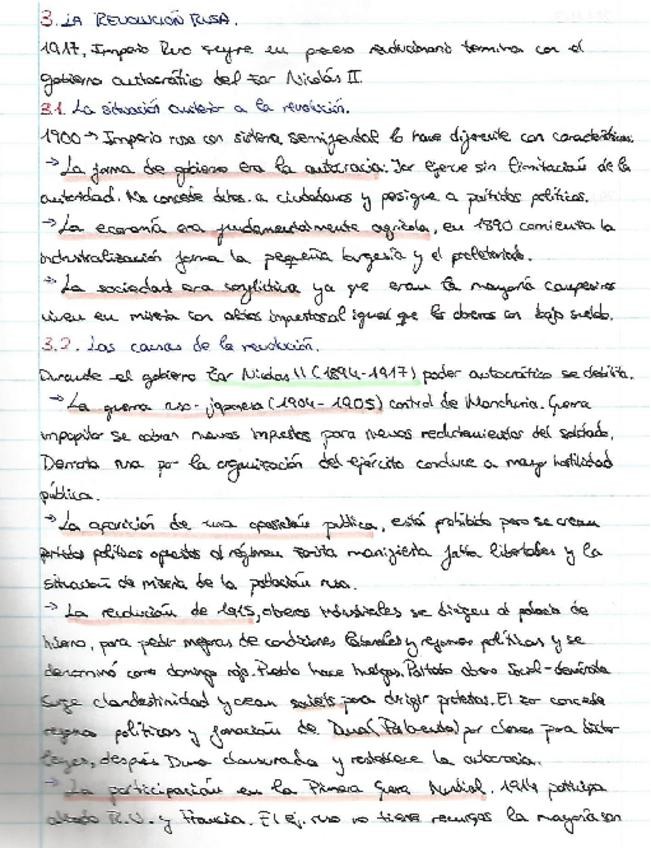 3. LA REVOLUCIÓN RUSA.
1917, Imperio Ruso seguye un proceso revolucionario termina con el
gobierno autocrático del Zar Nicolás II.
3.1. La situación anterior a la revolución.
1900 → Imperio ruso con sistema semifeudal lo hace diferente con características:
→ La forma de gobierno era la autocracia: Zar ejerce sin limitación de la
autoridad. No concede dchos. a ciudadanos y persigue a partidos políticos.
→ La economía era fundamentalmente agrícola, en 1890 comienza la
industrialización forma la pequeña burgesía y el proletariado.
→ La sociedad era conflictiva ya que eran la mayoría campesinos
viven en miseria con altos impuestos al igual que los obreros con bajo sueldo.
3.2. Las causas de la revolución.
Durante el gobierno Zar Nicolas II (1894-1917) poder autocrático se debilita.
→ La guerra ruso-japonesa (1904-1905) control de Manchuria. Guerra
impopular se cobran nuevos impuestos para nuevos reclutamientos del soldado.
Derrota rusa por la organización del ejército conduce a mayor hostilidad
pública.
→ La aparición de una oposición publica, está prohibido pero se crean
partidos políticos opuestos al régimen zarista manifiesta falta libertades y la
situación de miseria de la población rusa.
→ La revolución de 1915, obreros industriales se dirigen al palacio de
hivierno, para pedir mejoras de condiciones laborales y reformas políticas y se
denominó como domingo rojo. Pueblo hace huelgas. Partido obrero Social-demócrata
surge clandestinidad y crean soviets para dirigir protestas. El zar concede
reformas políticas y formación de Duma (Parlamento) por clases para dictar
leyes, después Duma clausurada y restablece la autocracia.
→ La participación en la Primera Guerra Mundial. 1914 participa
aliado R.U. y Francia. El ej. ruso no tiene recursos la mayoría son